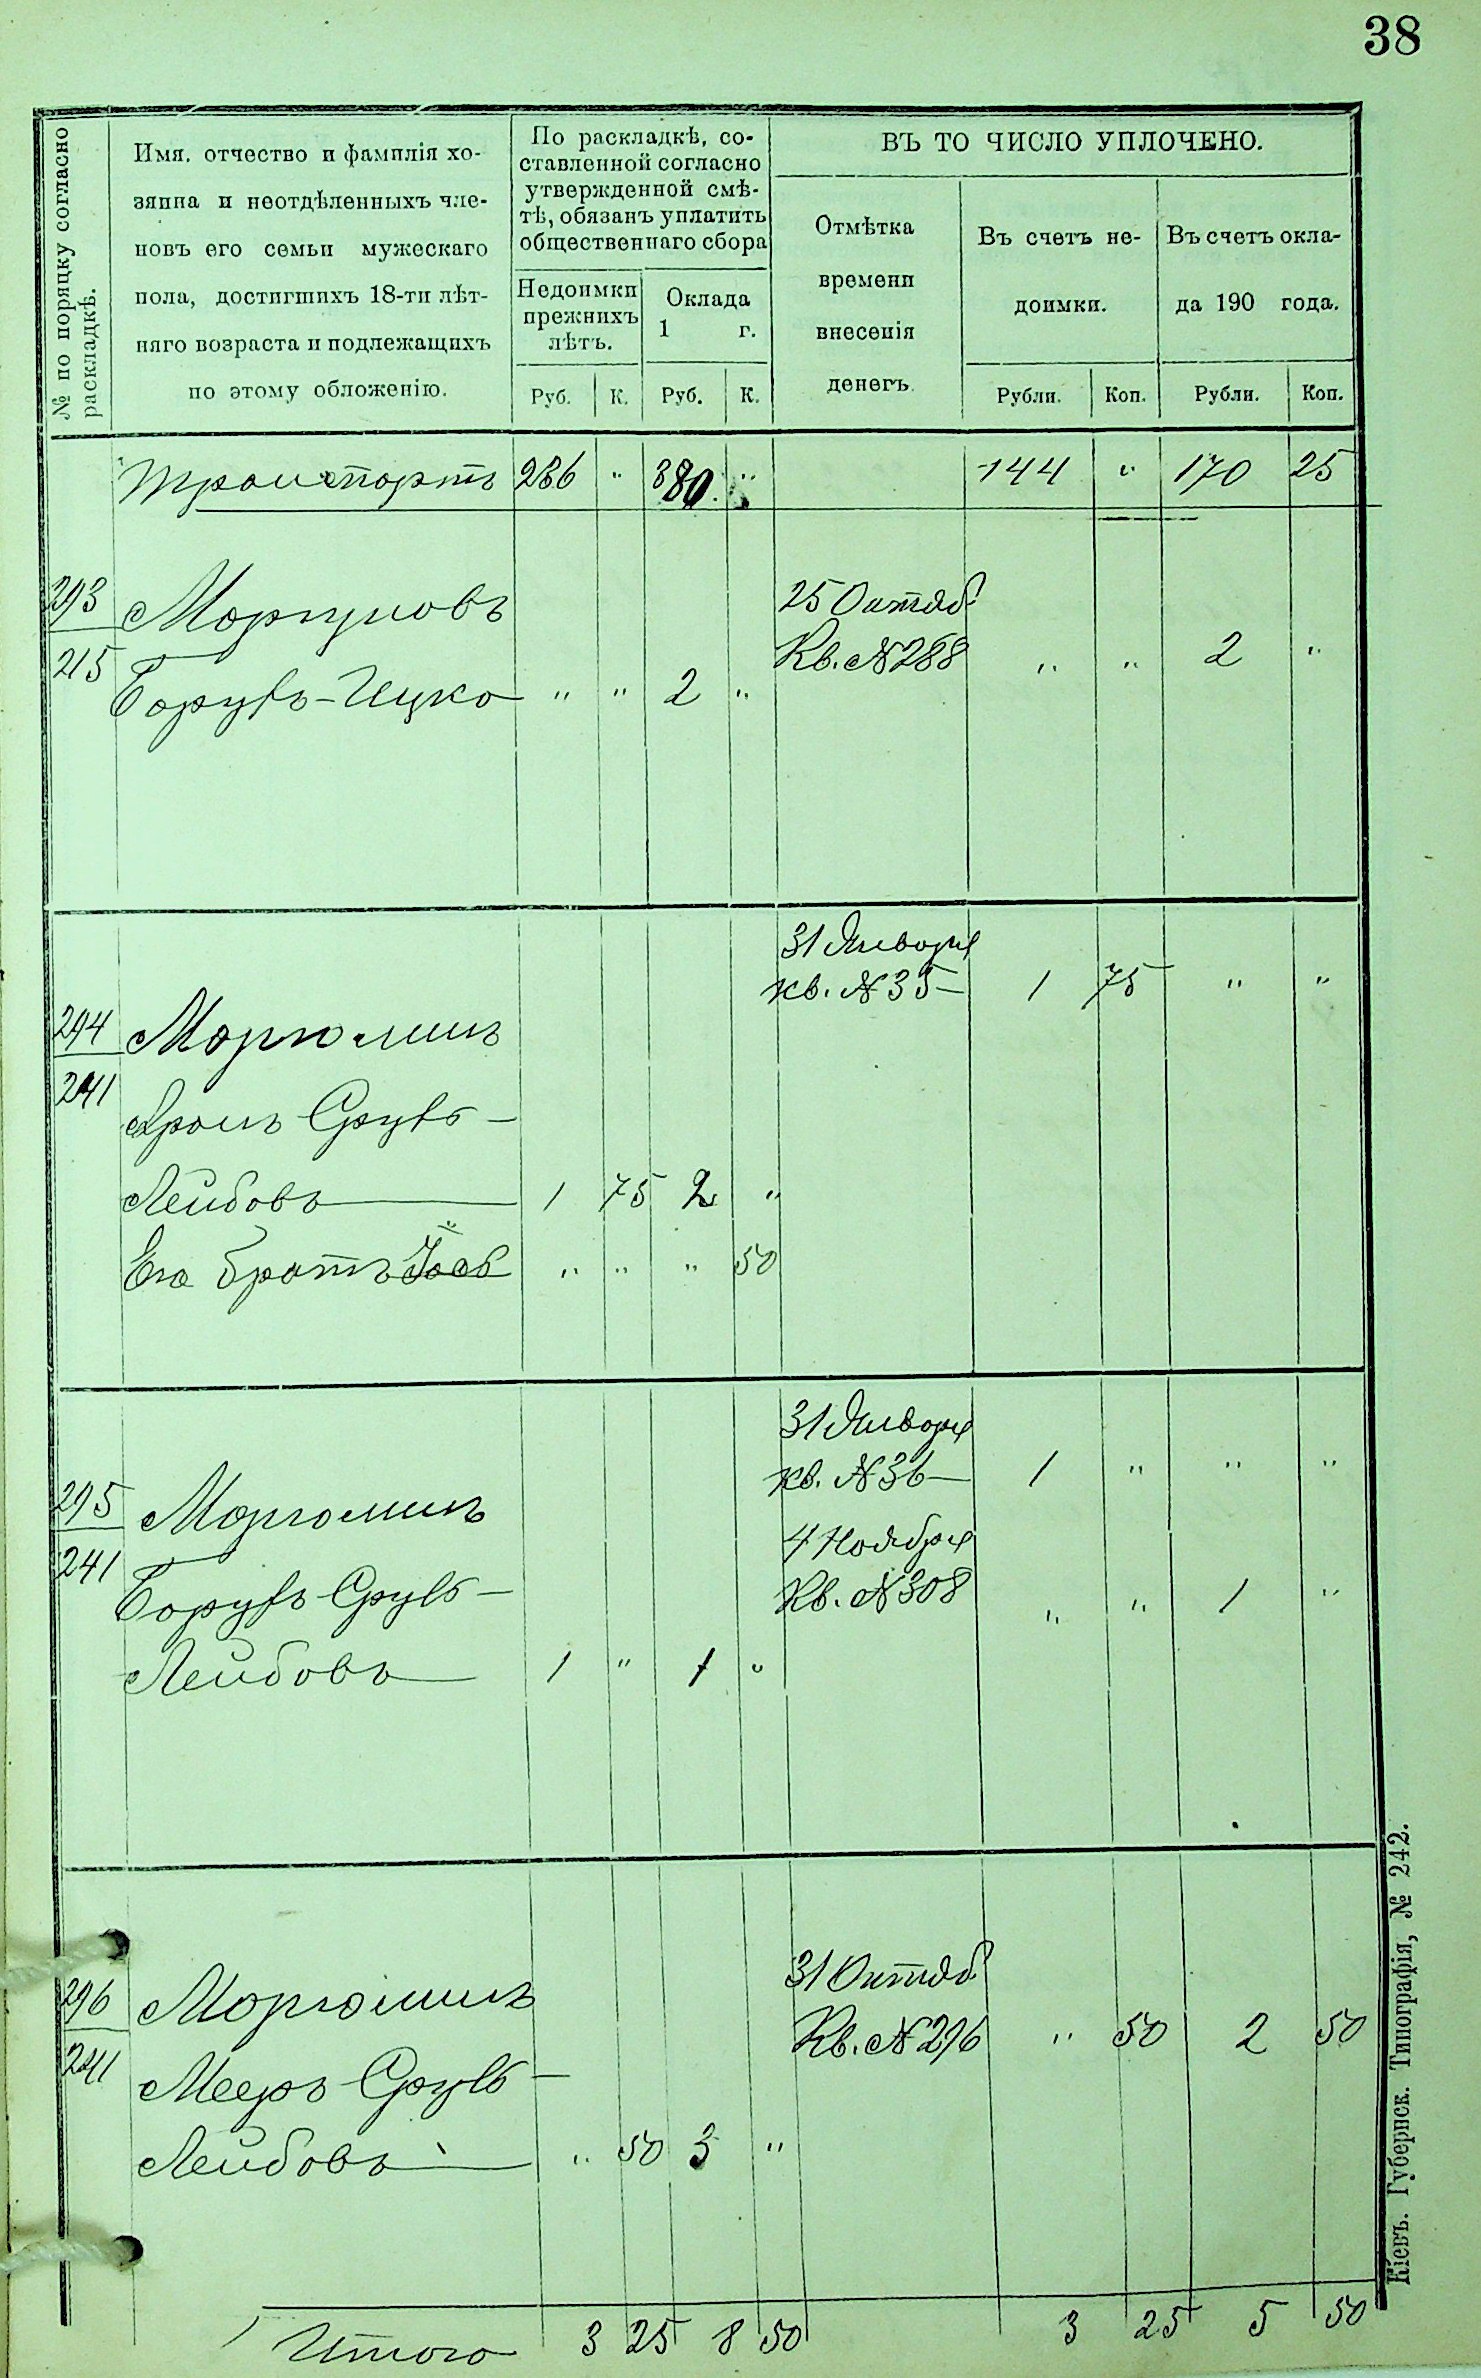 38
№ по порядку согласно раскладкѣ.
Имя, отчество и фамилія хо-
зяина и неотдѣленныхъ чле-
новъ его семьи мужескаго
пола, достигшихъ 18-ти лѣт-
няго возраста и подлежащихъ
по этому обложенію.
По раскладкѣ, со-
ставленной согласно
утвержденной смѣ-
тѣ, обязанъ уплатить
общественнаго сбора
Недоимки
прежнихъ
лѣтъ.
Оклада
1 г.
Руб. К. Руб. К.
ВЪ ТО ЧИСЛО УПЛОЧЕНО.
Отмѣтка
времени
внесенія
денегъ.
Въ счетъ не-
доимки.
Въ счетъ окла-
да 190 года.
Рубли. Коп. Рубли. Коп.
Транспортъ 286 " 380 " 144 " 170 25
293
215
Моргуновъ
Борухъ-Ицко " " 2 "
25 Октяб.
Кв. № 288 " " 2 "
31 Января
кв. № 35 — 1 75 " "
294
241
Марголинъ
Аронъ Сруль-
Лейбовъ 1 75 2 "
Его братъ Іось " " " 50
31 Января
кв. № 36 — 1 " " "
295
241
Марголинъ
Борухъ Сруль-
Лейбовъ 1 " 1 "
4 Ноября
Кв. № 308 " " 1 "
296
241
Марголинъ
Мееръ Сруль-
Лейбовъ " 50 3 "
31 Октяб.
Кв. № 296 " 50 2 50
Итого 3 25 8 50 3 25 5 50
Кіевъ. Губернск. Типографія, № 242.